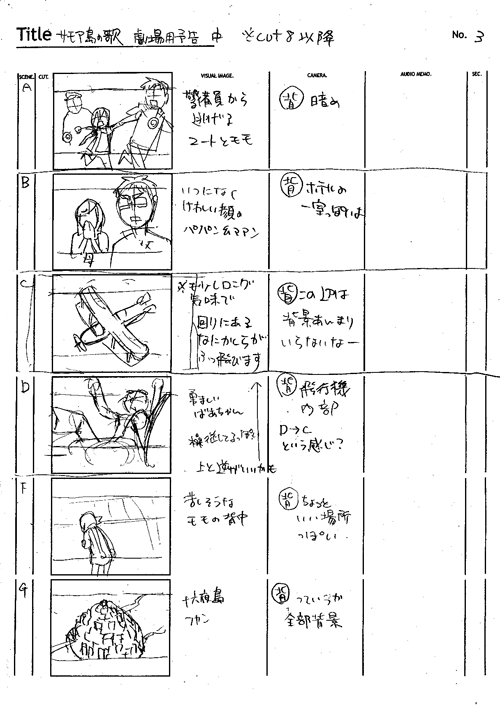 Title サモア島の歌 劇場用予告 中 ※cut 8 以降 No. 3
SCENE. CUT. VISUAL IMAGE. CAMERA. AUDIO MEMO. SEC.
A
警備員から
逃げる
ユートとモモ
背 暗め
B
いつになく
けわしい顔の
パパン&ママン
父
母
背 ホテルの
一室っぽい
C
※もう少しロング
気味で
回りにある
なにかしらが
ふっ飛びます
背 この上は
背景あんまり
いらないなー
D
勇ましい
ばあちゃん
操縦してる
上と逆がいいかも
背 飛行機
内部
D→C
という感じ?
F
苦しそうな
モモの背中
背 ちょっと
いい場所
っぽい
G
十六夜島
背 っていうか
全部背景